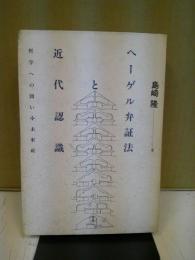 島崎 隆
ヘーゲル弁証法
と
近代認識
哲学への問い
未来社